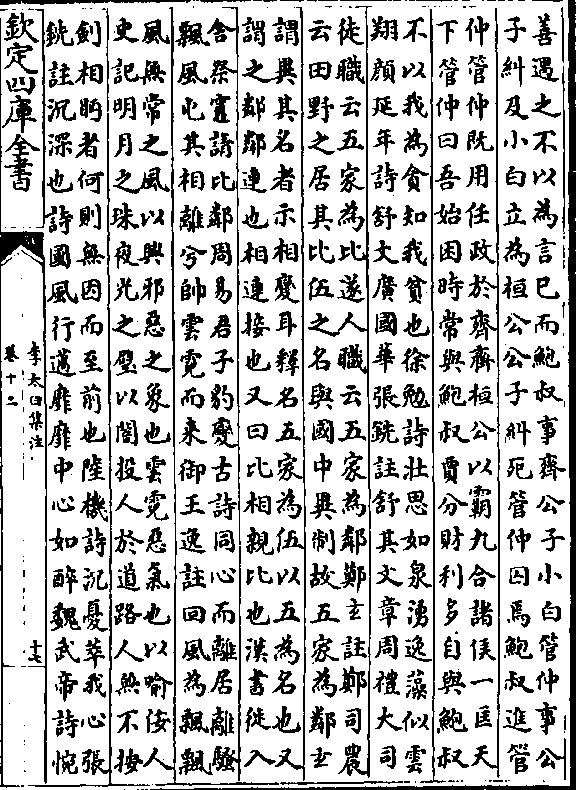 善遇之不以為言已而鮑叔事齊公子小白管仲事公
子糾及小白立為桓公公子糾死管仲囚焉鮑叔進管
仲管仲既用任政於齊齊桓公以霸九合諸侯一匡天
下管仲曰吾始困時常與鮑叔賈分財利多自與鮑叔
不以我為貪知我貧也徐勉詩壯思如泉湧逸藻似雲
翔顏延年詩舒文廣國華張銑註舒其文章周禮大司
徒職云五家為比遂人職云五家為鄰鄭玄註鄭司農
云田野之居其比伍之名與國中異制故五家為鄰玄
謂異其名者示相變耳釋名五家為伍以五為名也又
謂之鄰鄰連也相連接也又曰比相親比也漢書徙入
舍祭竈請比鄰周易君子豹變古詩同心而離居離騷
飄風屯其相離兮帥雲霓而來御王逸註回風為飄飄
風無常之風以興邪惡之象也雲霓惡氣也以喻佞人
史記明月之珠夜光之璧以闇投人於道路人無不按
劍相眄者何則無因而至前也陸機詩沉憂萃我心張
銑註沉深也詩國風行邁靡靡中心如醉魏武帝詩惋
欽定四庫全書
李太白集注
卷十二
十七